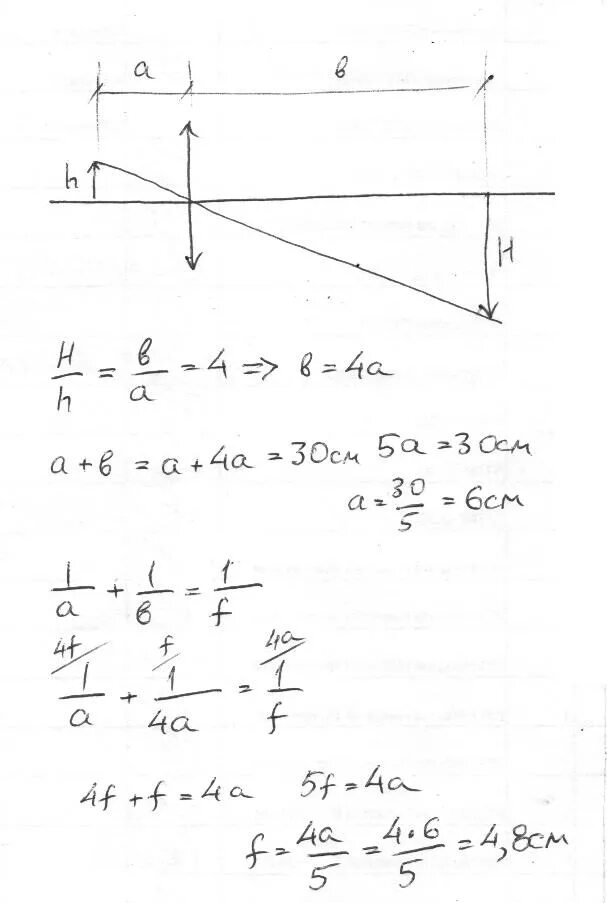 a в
h
H
H/h = в/a = 4 => в = 4a
a + в = a + 4a = 30см 5a = 30см
a = 30/5 = 6см
1/a + 1/в = 1/f
4f/ f/ 4a/
1/a + 1/4a = 1/f
4f + f = 4a 5f = 4a
f = 4a/5 = 4·6/5 = 4,8см